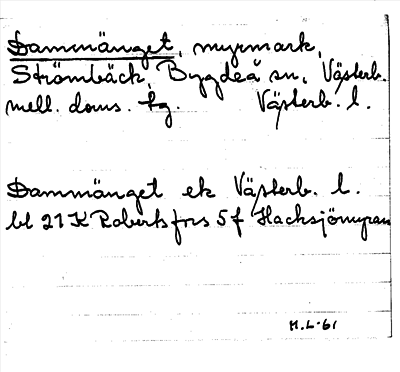 Dammänget, myrmark,
Strömbäck, Bygdeå sn, Västerb.
mell. doms. hg. Västerb. l.
Dammänget ek Västerb. l.
bl 21 K Robertsfors 5 f Hacksjömyran
H.L-61